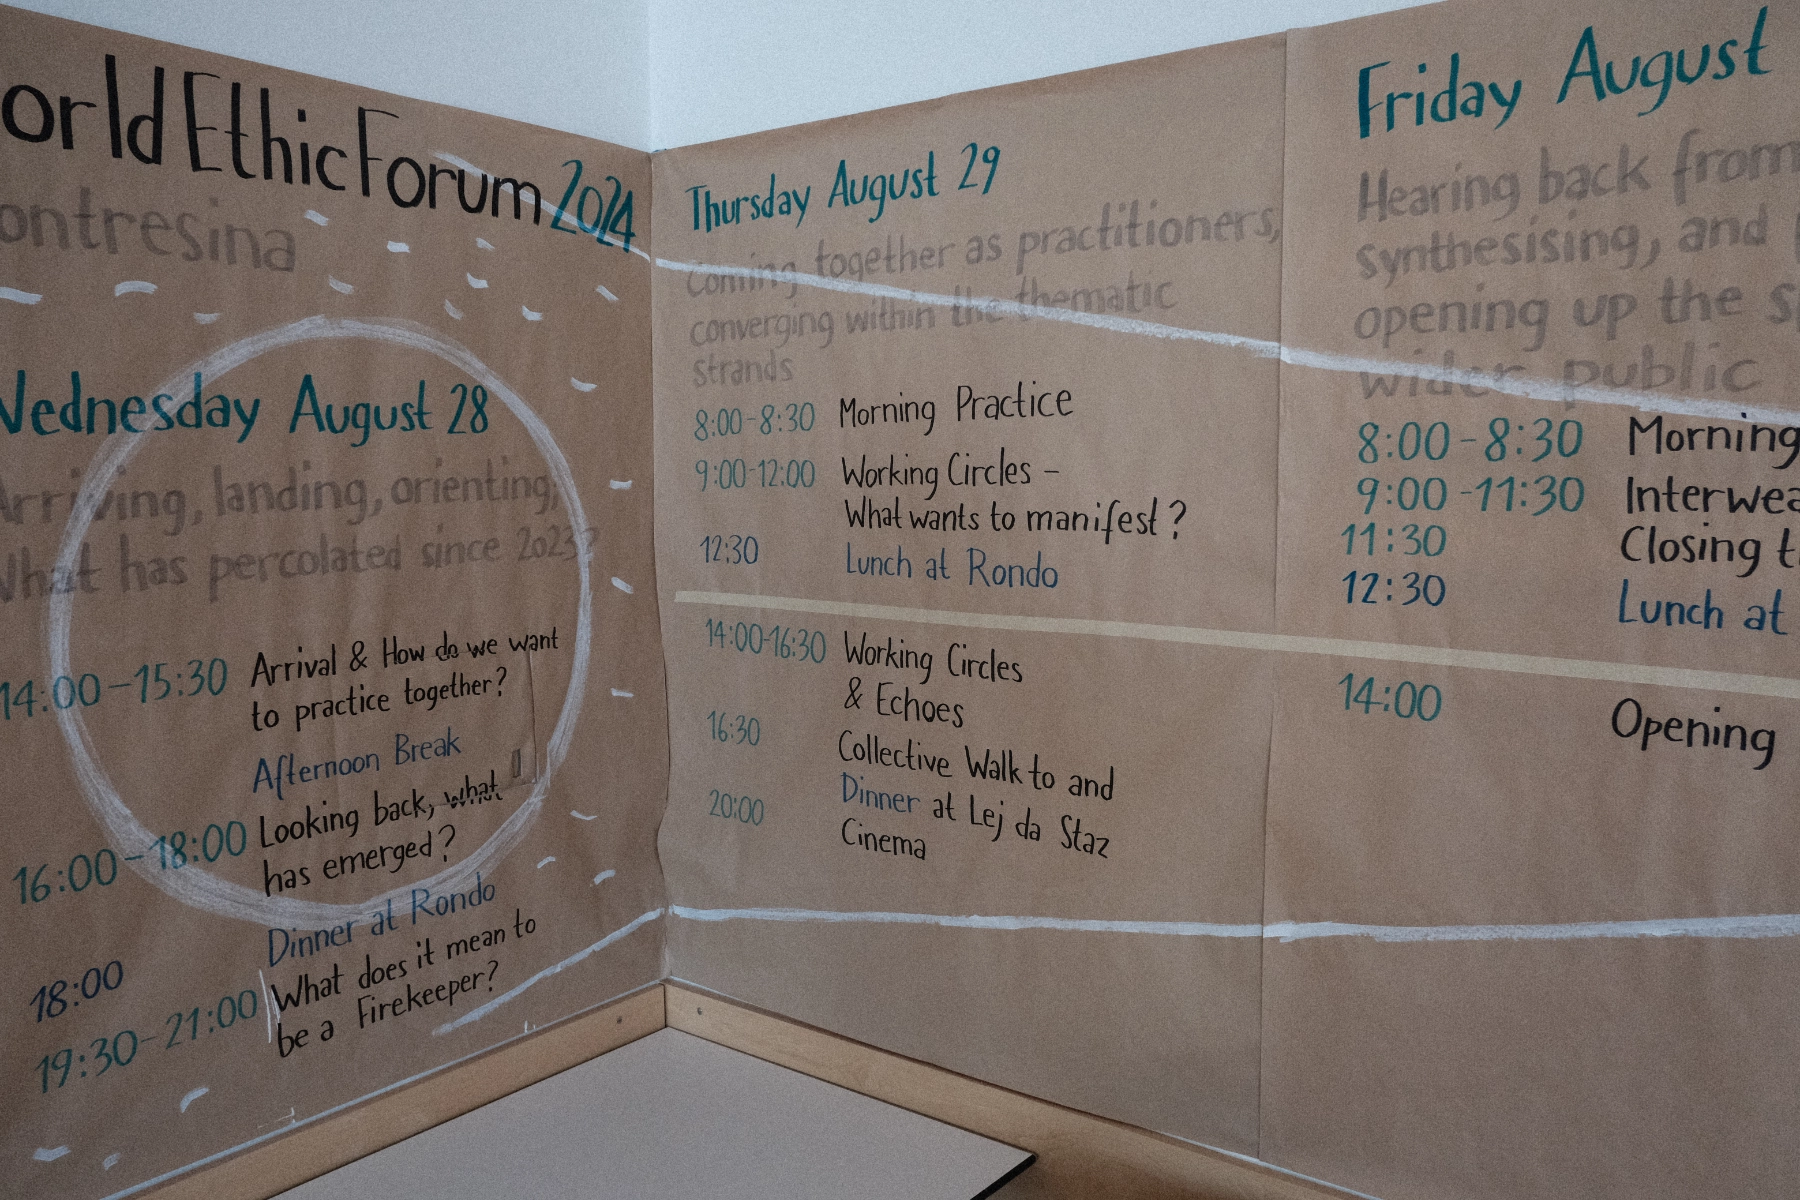 orld EthicForum 2024
ontresina
Wednesday August 28
Arriving, landing, orienting;
What has percolated since 2023?
14:00-15:30 Arrival & How do we want
to practice together?
Afternoon Break
16:00-18:00 Looking back, what
has emerged?
18:00 Dinner at Rondo
19:30-21:00 What does it mean to
be a Firekeeper?
Thursday August 29
Coming together as practitioners,
converging within the thematic
strands
8:00-8:30 Morning Practice
9:00-12:00 Working Circles -
What wants to manifest?
12:30 Lunch at Rondo
14:00-16:30 Working Circles
& Echoes
16:30 Collective Walk to and
Dinner at Lej da Staz
20:00 Cinema
Friday August
Hearing back from
synthesising, and
opening up the s
wider public
8:00-8:30 Morning
9:00-11:30 Interwea
11:30 Closing t
12:30 Lunch at
14:00 Opening